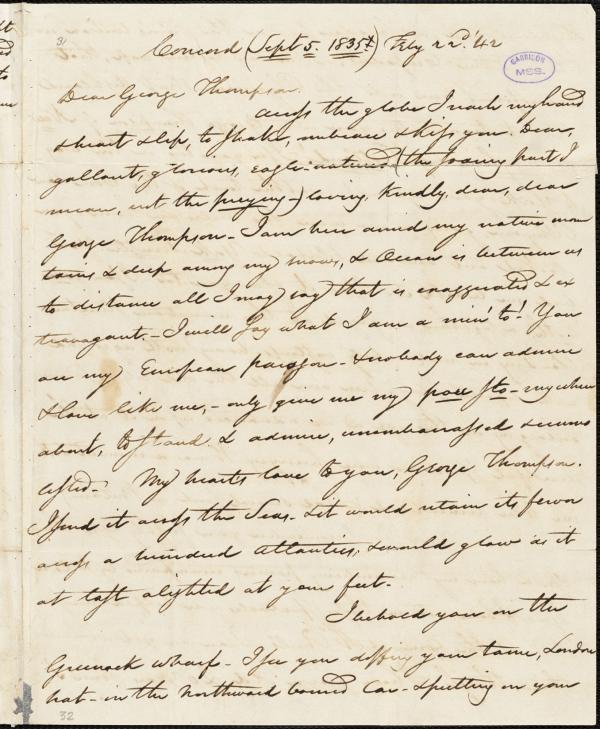 31
Concord (Sept 5. 1835*) Feby 22d. '42
GARRISON
MSS.
Dear George Thompson.
across the globe I reach my hand
& heart & lip, to shake, embrace & kiss you. Dear,
gallant, glorious, eagle-natured (the soaring part I
mean, not the preying-) loving, kindly, dear, dear
George Thompson - I am here amid my native moun
tains & deep among my snows, & Ocean is between us
to distance all I may say that is exaggerated & ex
travagant. - I will say what I am a mind to! You
are my European paragon - & nobody can admire
& love like me, - only give me my pou sto - my where
about, to stand & admire, unembarrassed
My hearts love to you, George Thompson.
I send it across the Seas - & it would retain its fervor
across a hundred atlantics, & would glow as it
at last alighted at your feet -
I behold you on the
Greenock wharf - I see you doffing your tame, London
hat - in the northward bound Car - & putting on your
32